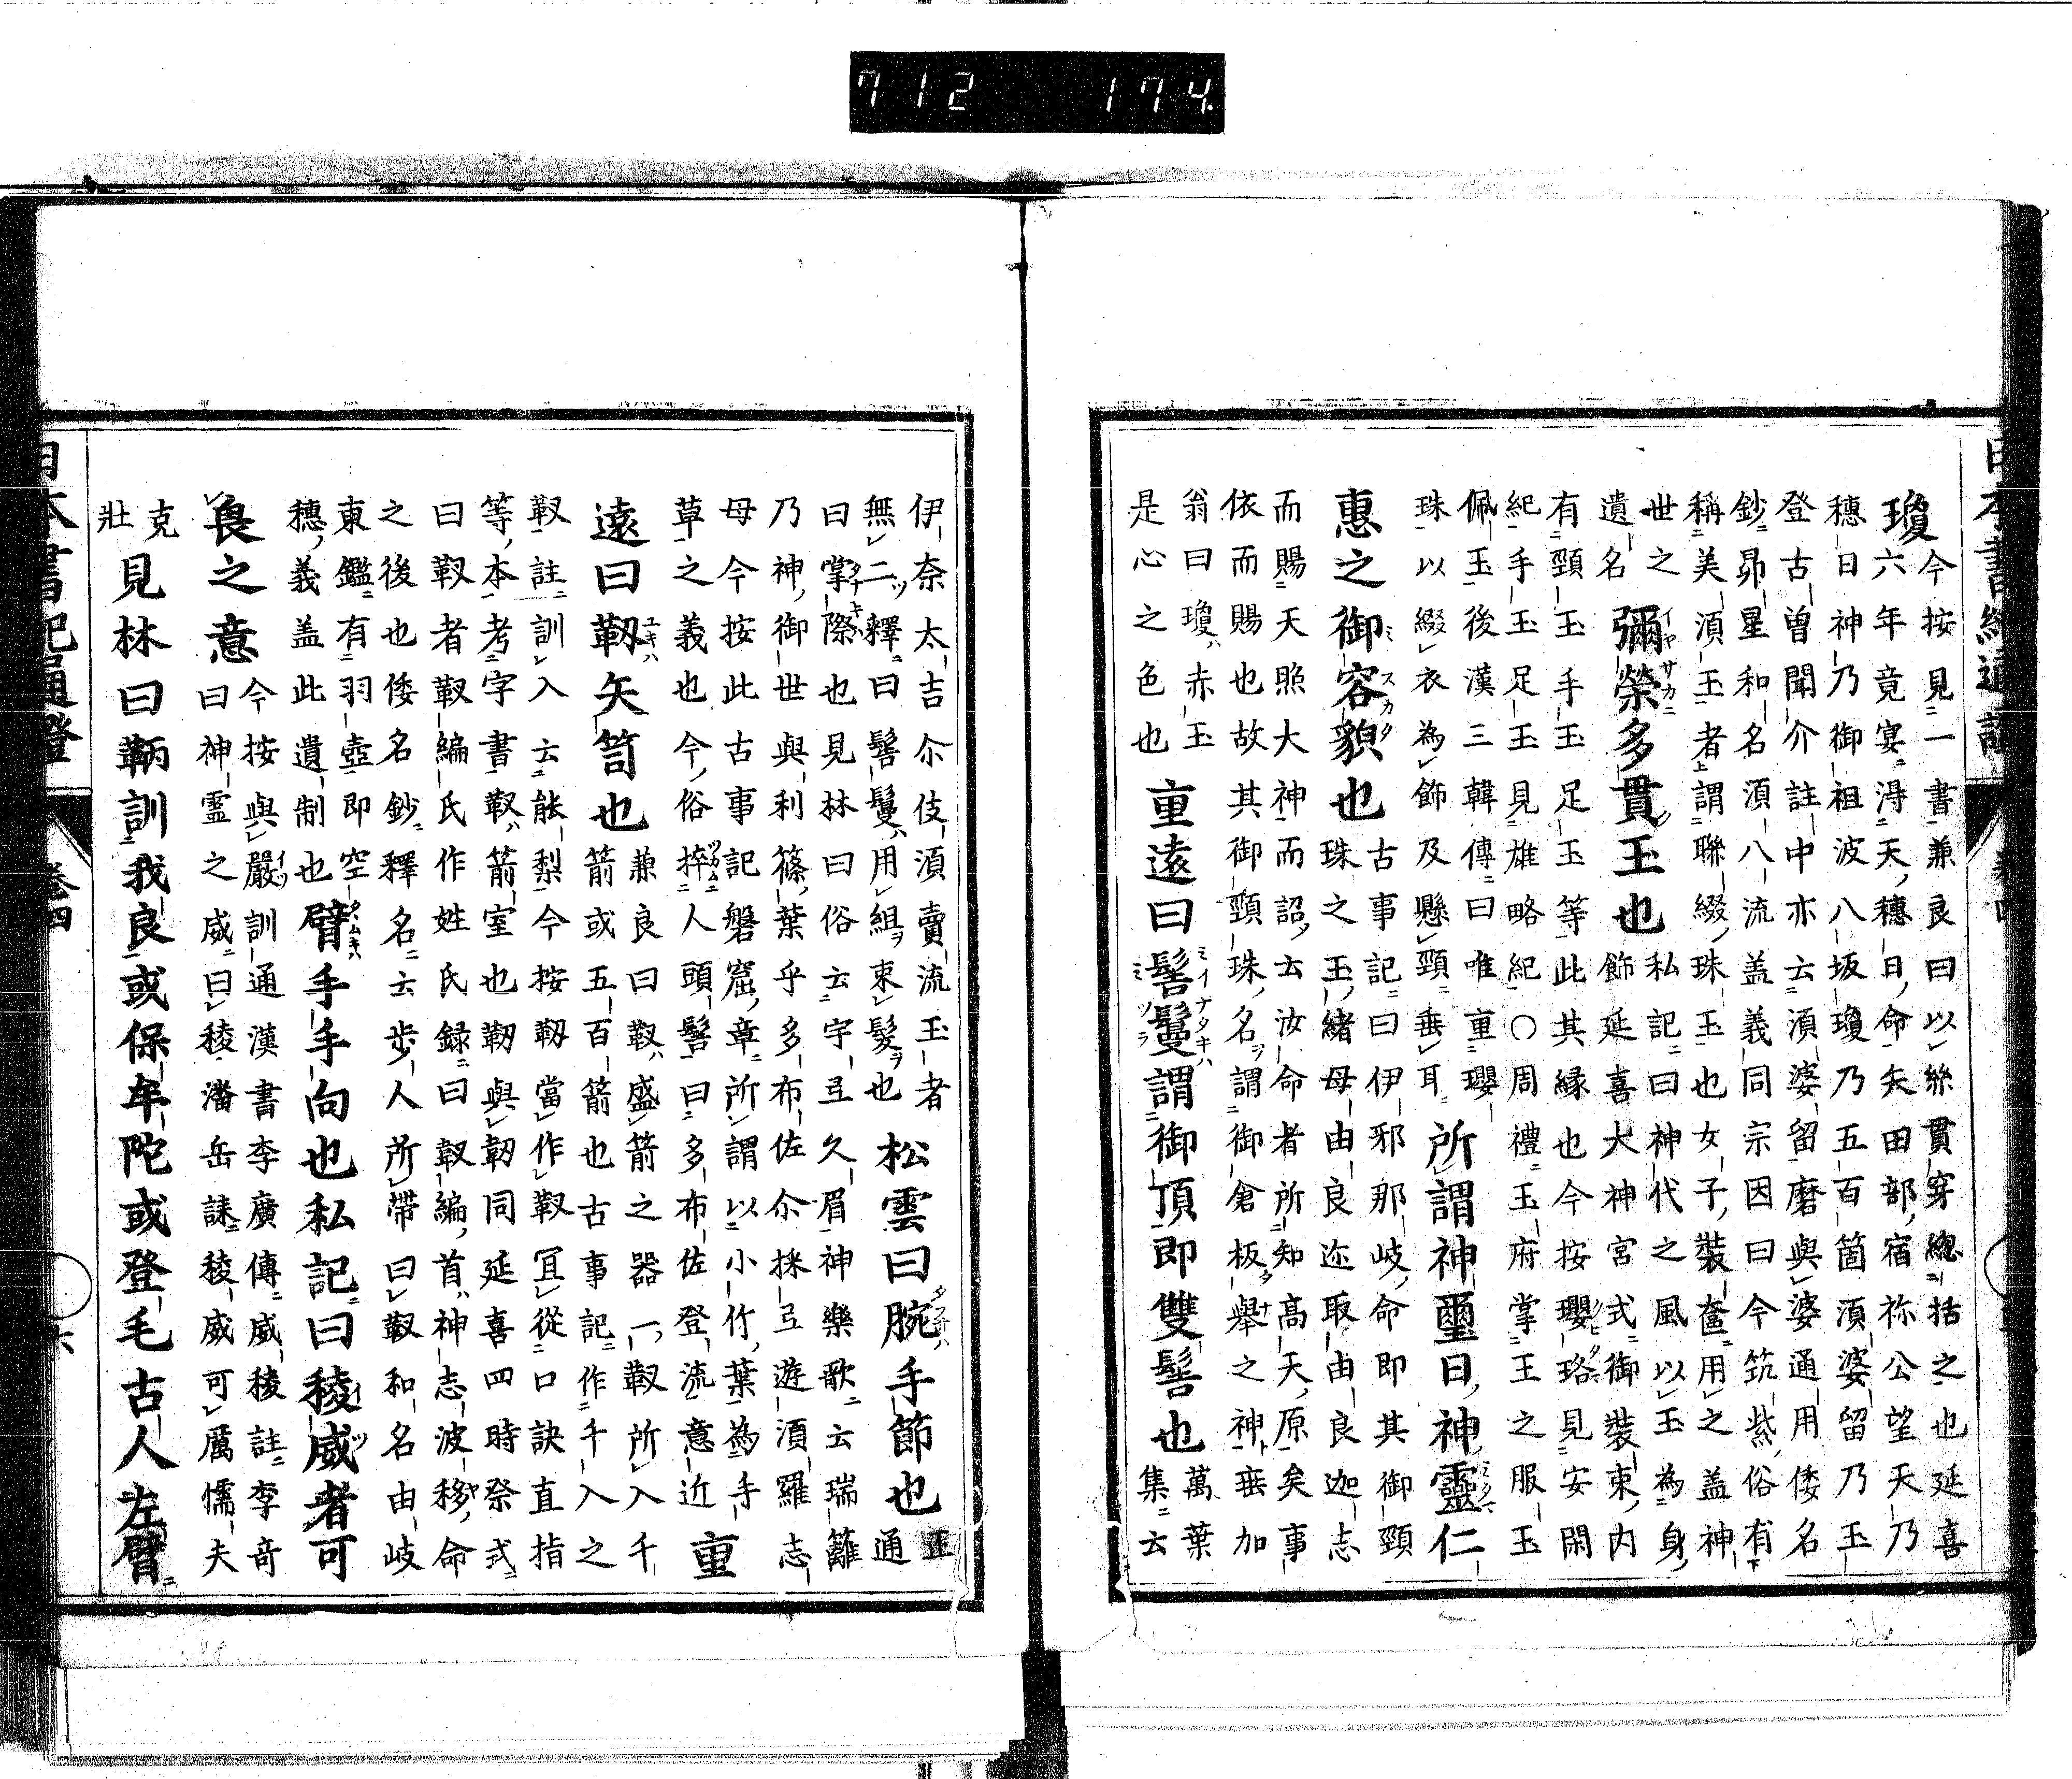 712 174
瓊
今按見一書兼良曰以絲貫穿緫括之也延喜
六年竟宴得天穗日命矢田部宿祢公望天乃
穗日神乃御祖波八坂瓊乃五百箇湏婆留乃玉
登古曽聞介註中亦云湏婆留磨與婆通用倭名
鈔昴星和名湏八流盖義同宗因曰今筑紫俗有
稱美湏玉者謂聯綴珠玉也女子裝奩用之盖神
世之
遺名
彌榮多貫玉也
私記曰神代之風以玉為身
飾延喜大神宮式御裝束内
有頸玉手玉足玉等此其縁也今按瓔珞見安閑
紀手玉足玉見雄略紀〇周禮玉府掌王之服玉
佩玉後漢三韓傳曰唯重瓔
珠以綴衣為飾及懸頸垂耳
所謂神璽曰神靈仁
惠之御容貌也
古事記曰伊邪那岐命即其御頸
珠之玉緒母由良迩取由良迦志
而賜天照大神而詔云汝命者所知高天原矣事
依而賜也故其御頸珠名謂御倉板舉之神垂加
翁曰瓊赤玉
是心之色也
重遠曰髻鬘謂御頂即雙髻也
萬葉
集云
伊奈太吉尒伎湏賣流玉者
無二釋曰髻鬘用組束髮也
松雲曰腕手節也
正
通
曰掌際也見林曰俗云宇弖久眉神樂歌云瑞籬
乃神御世與利篠葉乎多布佐尒採弖遊湏羅志
母今按此古事記磐窟章所謂以小竹葉為手
草之義也今俗捽人頭髻曰多布佐登流意近
重
遠曰靱矢笥也
兼良曰靫盛箭之器一靫所入千
箭或五百箭也古事記作千入之
靫註訓入云能梨今按靱當作靫冝從口訣直指
等本考字書靫箭室也靱與韌同延喜四時祭式
曰靫者靫編氏作姓氏録曰靫編首神志波移命
之後也倭名鈔釋名云步人所帶曰靫和名由岐
東鑑有羽壺即空
穗義盖此遺制也
臂手手向也私記曰稜威者可
畏之意
今按與嚴訓通漢書李廣傳威稜註李奇
曰神靈之威曰稜潘岳誄稜威可厲懦夫
克
壯
見林曰鞆訓我良或保牟陀或登毛古人左臂
卷四
六